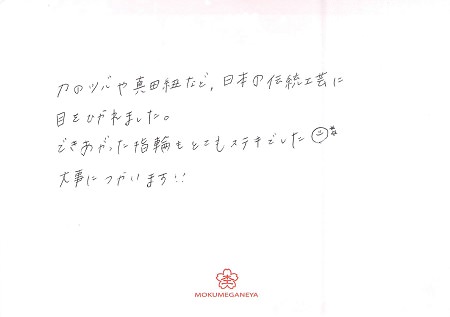 刀のツバや真田紐など、日本の伝統工芸に
目をひかれました。
できあがった指輪もとてもステキでした
大事につかいます!!
MOKUMEGANEYA